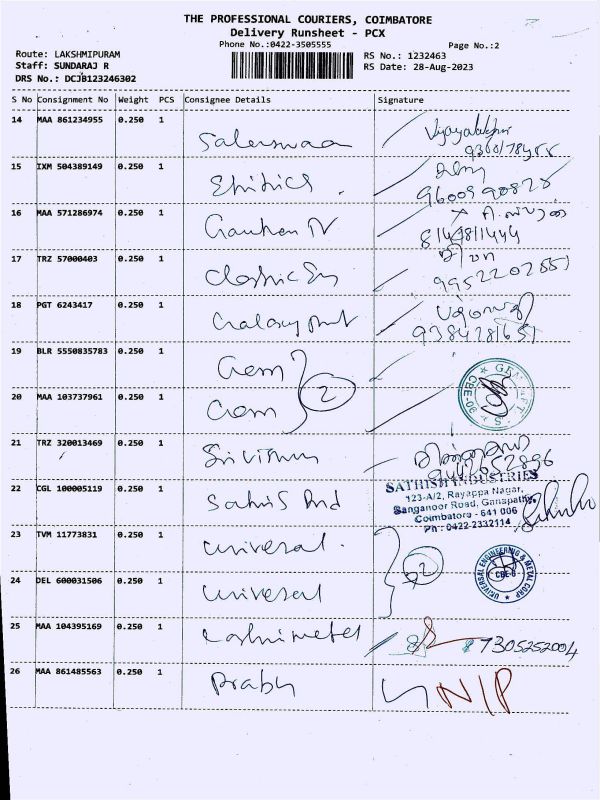 THE PROFESSIONAL COURIERS, COIMBATORE
Delivery Runsheet - PCX
Phone No.:0422-3505555
Page No.:2
Route: LAKSHMIPURAM
Staff: SUNDARAJ R
DRS No.: DCJB123246302
RS No.: 1232463
RS Date: 28-Aug-2023
S No Consignment No Weight PCS Consignee Details Signature
14 MAA 861234955 0.250 1
15 IXM 504389149 0.250 1
9600590828
16 MAA 571286974 0.250 1
17 TRZ 57000403 0.250 1 Classic
9952207551
18 PGT 6243417 0.250 1 Galaxy
9384281651
19 BLR 5550835783 0.250 1 Gem
2
20 MAA 103737961 0.250 1 Gem
21 TRZ 320013469 0.250 1 Sri Vishnu
9442652896
22 CGL 100005119 0.250 1 Sathis Ind
SATHISH INDUSTRIES
123-A/2, Rayappa Nagar,
Sanganoor Road, Ganapathy,
Coimbatore - 641 006
Ph : 0422-2332114
23 TVM 11773831 0.250 1 Universal
2
UNIVERSAL ENGINEERING & METAL CORP
CBE-6
24 DEL 600031506 0.250 1 Universal
25 MAA 104395169 0.250 1 Lashmi metal
7305252004
26 MAA 861485563 0.250 1 Prabu
N/P